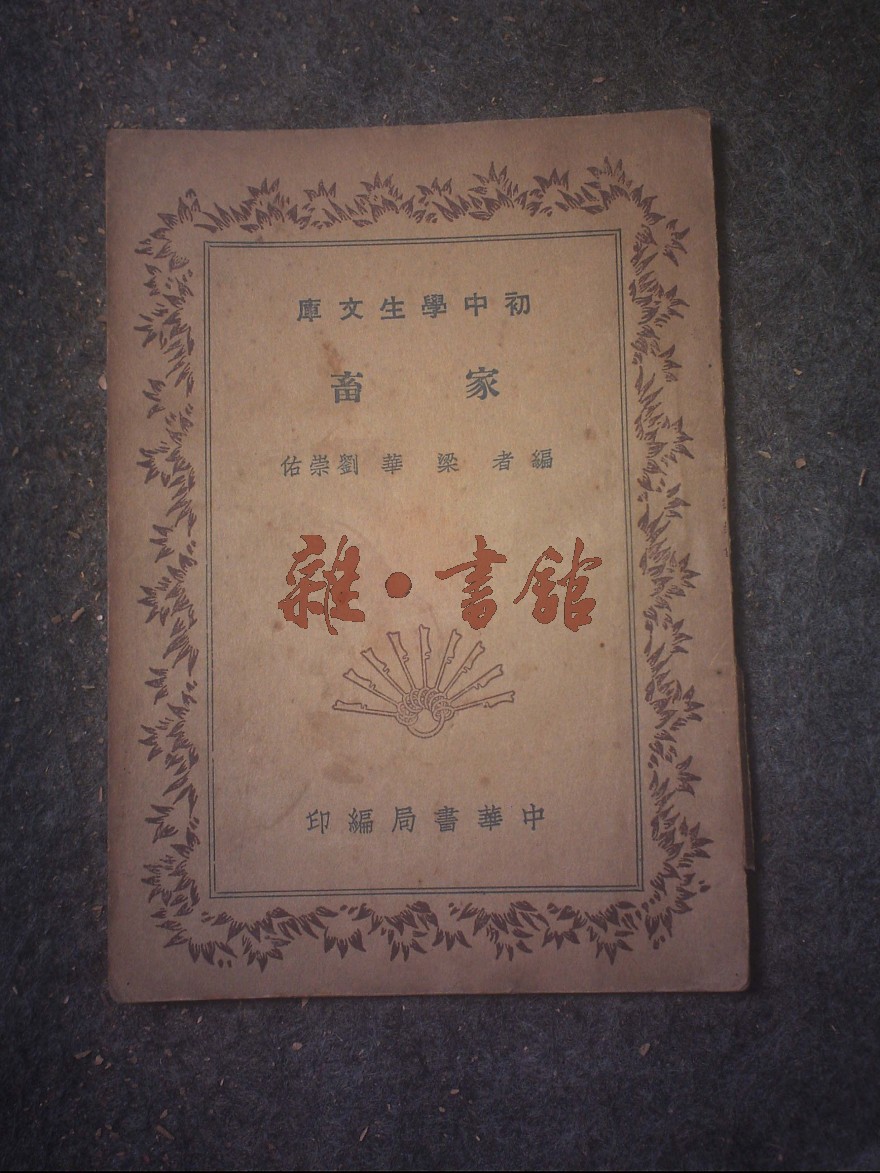 初中學生文庫
家畜
編者 梁華 劉崇佑
雜·書館
中華書局編印